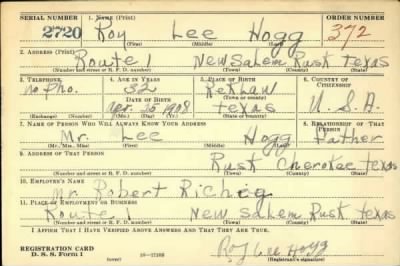 SERIAL NUMBER 1. NAME (Print) ORDER NUMBER
2720 Roy Lee Hogg 372
(First) (Middle) (Last)
2. ADDRESS (Print)
Route 1 New Salem Rusk Texas
(Number and street or R. F. D. number) (Town) (County) (State)
3. TELEPHONE 4. AGE IN YEARS 5. PLACE OF BIRTH 6. COUNTRY OF CITIZENSHIP
no Pho. 32 Reklaw
DATE OF BIRTH (Town or county)
Apr. 30 1908 Texas U. S. A.
(Exchange) (Number) (Mo.) (Day) (Yr.) (State or country)
7. NAME OF PERSON WHO WILL ALWAYS KNOW YOUR ADDRESS 8. RELATIONSHIP OF THAT PERSON
Mr. Lee Hogg Father
(Mr., Mrs., Miss) (First) (Middle) (Last)
9. ADDRESS OF THAT PERSON
Rusk Cherokee Texas
(Number and street or R. F. D. number) (Town) (County) (State)
10. EMPLOYER'S NAME
Mr Robert
11. PLACE OF EMPLOYMENT OR BUSINESS
Route 1 New Salem Rusk Texas
(Number and street or R. F. D. number) (Town) (County) (State)
I AFFIRM THAT I HAVE VERIFIED ABOVE ANSWERS AND THAT THEY ARE TRUE.
REGISTRATION CARD Roy Lee Hogg
D. S. S. Form 1 (over) 16-17105 (Registrant's signature)